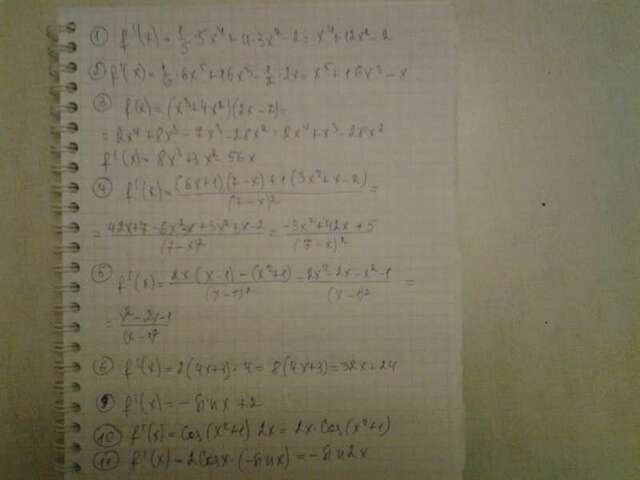 ① f'(x) = 1/5 · 5x⁴ + 4 · 3x² - 2 = x⁴ + 12x² - 2
② f'(x) = 1/6 · 6x⁵ + 16x³ - 1/2 · 2x = x⁵ + 16x³ - x
③ f(x) = (x³ + 4x²)(2x - 7) =
= 2x⁴ + 8x³ - 7x³ - 28x² = 2x⁴ + x³ - 28x²
f'(x) = 8x³ + 3x² - 56x
④ f'(x) = (6x+1)(7-x) + 1(3x²+x-2) / (7-x)² =
= 42x+7-6x²-x+3x²+x-2 / (7-x)² = -3x²+42x+5 / (7-x)²
⑤ f'(x) = 2x(x-1) - (x²+1) / (x-1)² = 2x²-2x-x²-1 / (x-1)² =
= x²-2x-1 / (x-1)²
⑥ f'(x) = 2(4x+3) · 4 = 8(4x+3) = 32x + 24
⑨ f'(x) = - sin x + 2
⑩ f'(x) = cos(x²+1) 2x = 2x · cos(x²+1)
⑪ f'(x) = 2cosx · (-sinx) = - sin2x